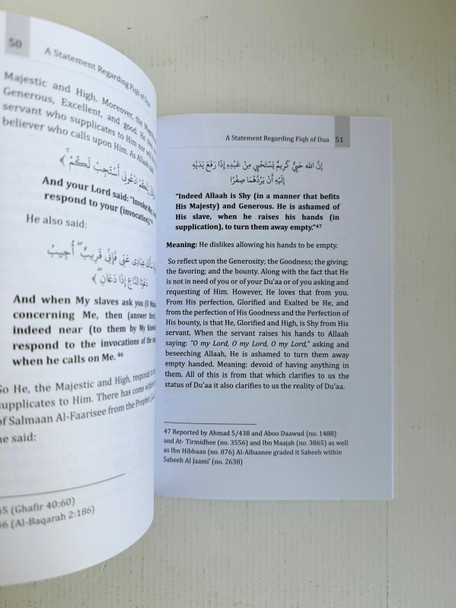 50
A Statement Regarding Fiqh of Dua
Majestic and High. Moreover, the
Generous, Excellent, and good. He
servant who supplicates to Him
believer who calls upon Him. As Allaah
And your Lord said: "Invoke
respond to your (invocation)
He also said:
And when My slaves ask you (O
concerning Me, then (answer
indeed near (to them by My
respond to the invocations of the
when he calls on Me. 46
So He, the Majestic and High,
supplicates to Him. There has come
of Salmaan Al-Faarisee from the Prophet
he said:
45 (Ghafir 40:60)
46 (Al-Baqarah 2:186)
A Statement Regarding Fiqh of Dua 51
إِنَّ الله حَيِيٌّ كَرِيمٌ يَسْتَحْيِي مِنْ عَبْدِهِ إِذَا رَفَعَ يَدَيْهِ
إِلَيْهِ أَنْ يَرُدَّهُمَا صِفْرًا
"Indeed Allaah is Shy (in a manner that befits
His Majesty) and Generous. He is ashamed of
His slave, when he raises his hands (in
supplication), to turn them away empty."47
Meaning: He dislikes allowing his hands to be empty.
So reflect upon the Generosity; the Goodness; the giving;
the favoring; and the bounty. Along with the fact that He
is not in need of you or of your Du'aa or of you asking and
requesting of Him. However, He loves that from you.
From His perfection, Glorified and Exalted be He, and
from the perfection of His Goodness and the Perfection of
His bounty, is that He, Glorified and High, is Shy from His
servant. When the servant raises his hands to Allaah
saying: "O my Lord, O my Lord, O my Lord," asking and
beseeching Allaah, He is ashamed to turn them away
empty handed. Meaning: devoid of having anything in
them. All of this is from that which clarifies to us the
status of Du'aa it also clarifies to us the reality of Du'aa.
47 Reported by Ahmad 5/438 and Aboo Daawud (no. 1488)
and At- Tirmidhee (no. 3556) and Ibn Maajah (no. 3865) as well
as Ibn Hibbaan (no. 876) Al-Albaanee graded it Saheeh within
Saheeh Al Jaami' (no. 2638)